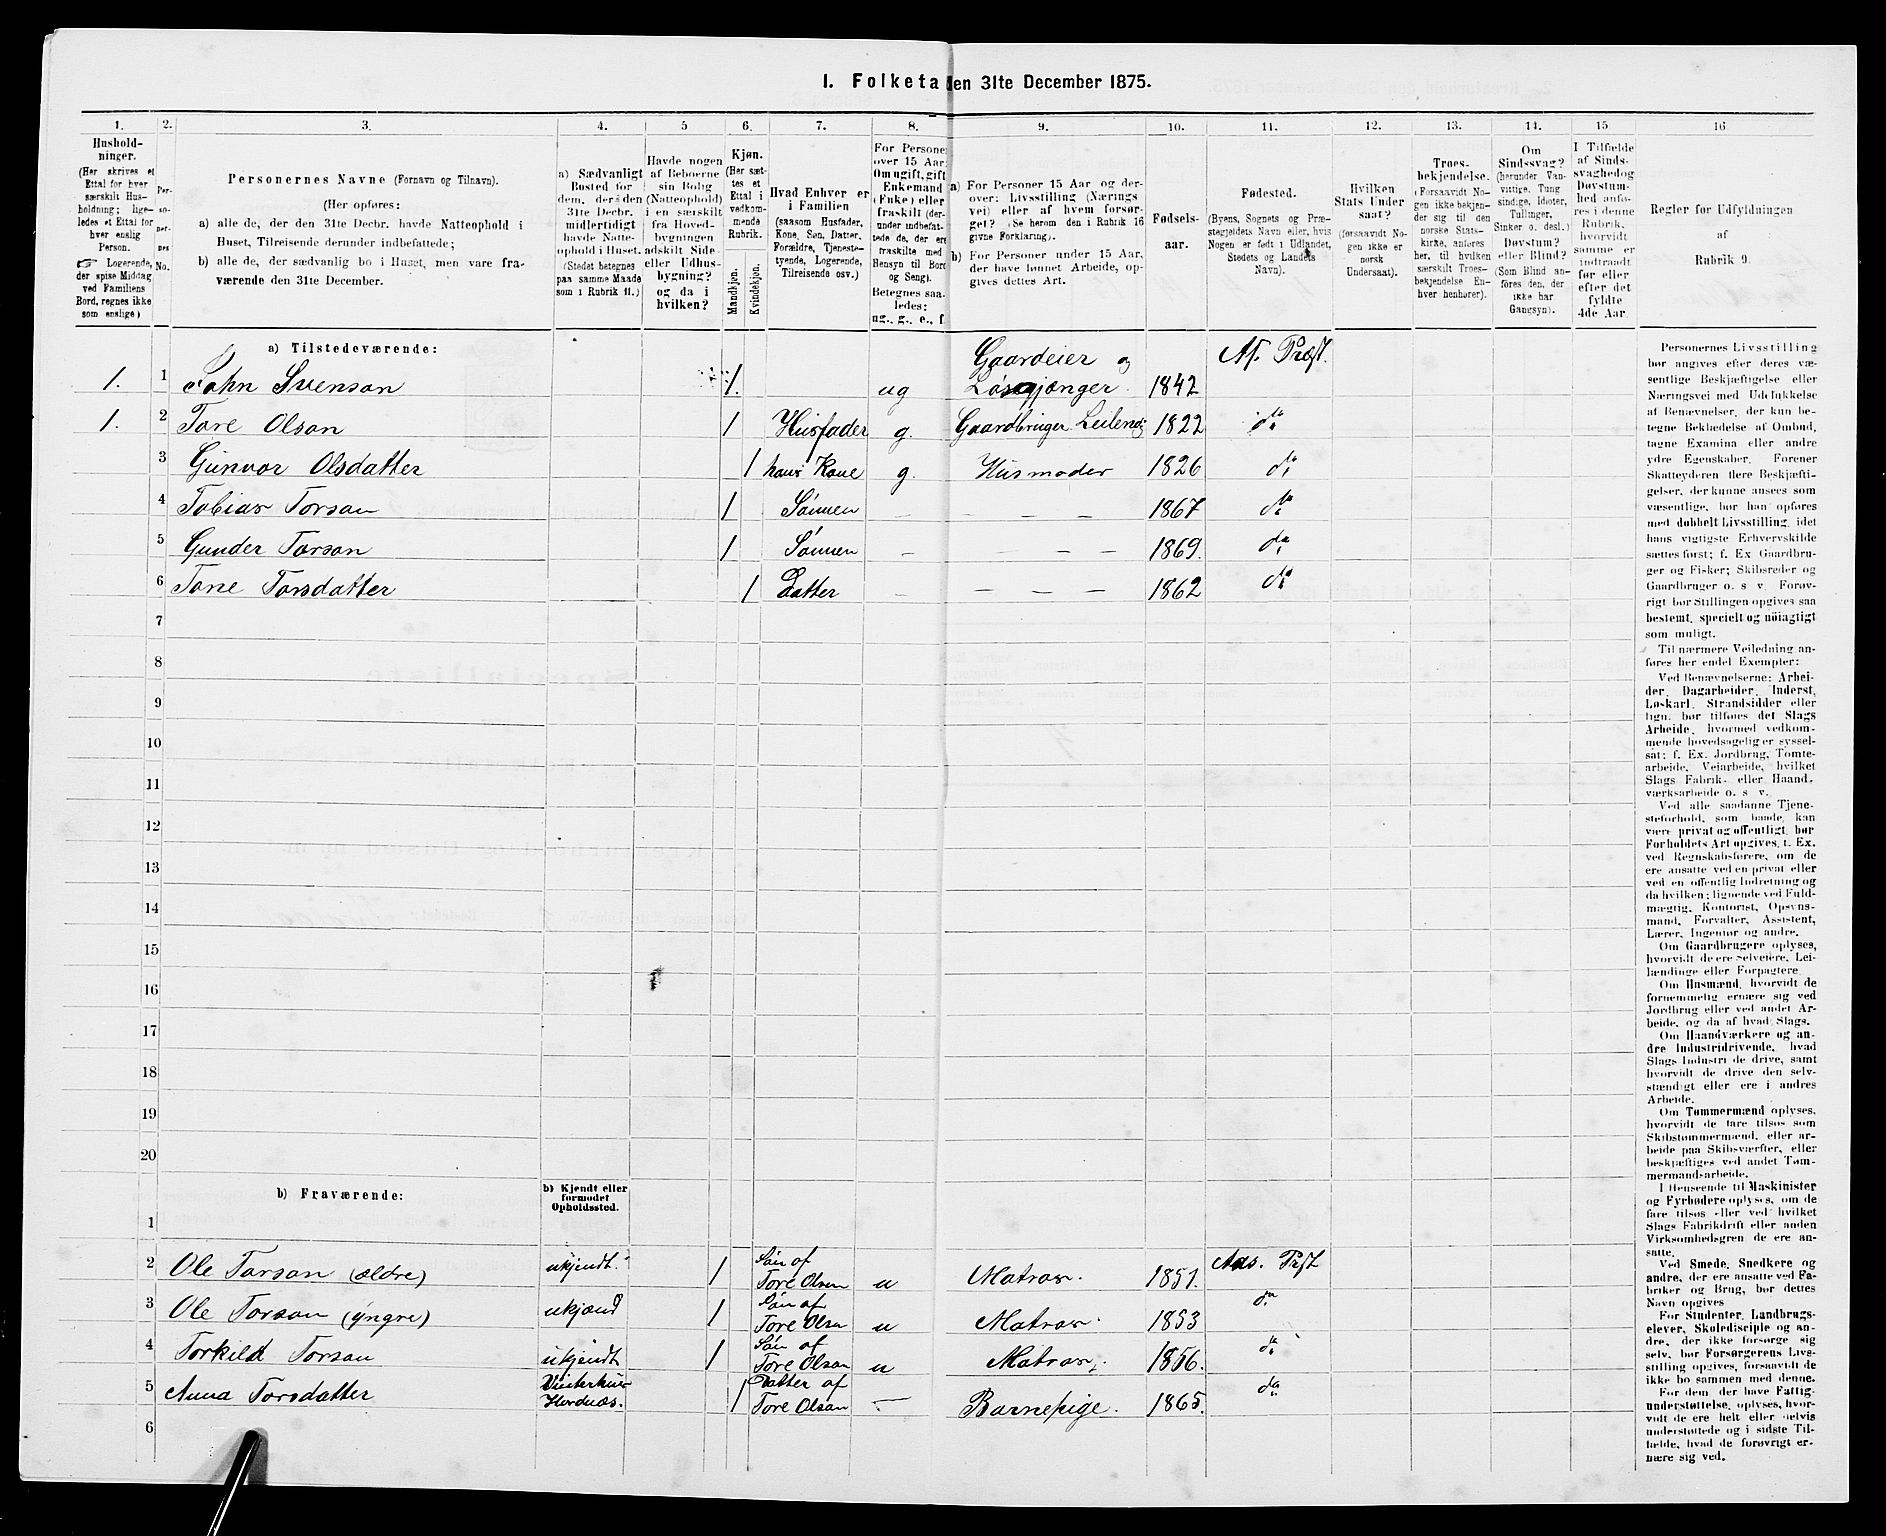 1. Folketa den 31te December 1875.
1. 2. 3. 4. 5 6. 7. 8. 9. 10. 11. 12. 13. 14. 15 16
Hushold-
ninger.
(Her skrives et
Ettal for hver
særskilt Hus-
holdning; lige-
ledes et Ettal for
hver enslig
Person.
☞ Logerende,
der spise Middag
ved Familiens
Bord, regnes ikke
som enslige)
Per-
so-
ner-
nes
No.
Personernes Navne (Fornavn og Tilnavn).
(Her opføres:
a) alle de, der den 31te Decbr. havde Natteophold i
Huset, Tilreisende derunder indbefattede;
b) alle de, der sædvanlig bo i Huset, men vare fra-
værende den 31te December.
a) Sædvanligt
Bosted for
dem, der den
31te Decbr.
midlertidigt
havde Natte-
ophold i Huset.
(Stedet betegnes
paa samme Maade
som i Rubrik 11.)
Havde nogen
af Beboerne
sin Bolig
(Natteophold)
i en særskilt
fra Hoved-
bygningen
adskilt Side-
eller Udhus-
bygning?
og da i
hvilken?
Kjøn.
(Her sæt-
tes et
Ettal i
vedkom-
mende
Rubrik.
Mandkjøn.
Kvindekjøn.
Hvad Enhver er
i Familien
(saasom Husfader,
Kone, Søn, Datter,
Forældre, Tjeneste-
tyende, Logerende,
Tilreisende osv.)
For Personer
over 15 Aar:
Om ugift, gift
Enkemand
(Enke) eller
fraskilt (der-
under indbefat-
tede de, der ere
fraskilte med
Hensyn til Bord
og Seng).
Betegnes saa-
ledes:
ug., g., e., f.
a) For Personer 15 Aar og der-
over: Livsstilling (Nærings
vei) eller af hvem forsør-
get? (Se herom den i Rubrik 16
givne Forklaring).
b) For Personer under 15 Aar,
der have lønnet Arbeide, op-
gives dettes Art.
Fødsels-
aar.
Fødested.
(Byens, Sognets og Præ-
stegjeldets Navn eller, hvis
Nogen er født i Udlandet,
Stedets og Landets
Navn).
Hvilken
Stats Under
saat?
(forsaavidt No-
gen ikke er
norsk
Undersaat).
Troes-
bekjendelse.
(Forsaavidt No-
gen ikke bekjen-
der sig til den
norske Stats-
kirke, anføres
her, til hvilken
særskilt Troes-
bekjendelse En-
hver henhører).
Om
Sindssvag?
(herunder Van-
vittige, Tung
sindige, Idioter,
Tullinger,
Sinker o. desl.)
Døvstum?
eller Blind?
(Som Blind an-
føres den, der
ikke har
Gangsyn).
I Tilfælde
af Sinds-
svaghed og
Døvstum-
hed anfø-
res i denne
Rubrik,
hvorvidt
samme er
indtraadt
før eller
efter det
fyldte
4de Aar.
Regler for Udfyldningen
af
Rubrik 9.
a) Tilstedeværende:
1. 1 John Svenson 1. ug Gaardeier og Løsgjænger. 1842 Af. Præst.
1. 2 Tore Olson 1 Husfader g. Gaardbruger Leilend: 1822 do
3 Gunvor Olsdatter 1 hans Kone g. Husmoder 1826 do
4 Tobias Torson 1 Sønnen – – – – 1867 do
5 Gunder Torson 1 Sønnen – – – – 1869. do
6 Tone Torsdatter 1 Datter – – – – 1862 do
7
8
9
10
11
12
13
14
15
16
17
18
19
20
b) Fraværende:
b) Kjendt eller
formodet
Opholdssted.
1
2 Ole Torson (ældre) ukjendt. 1 Søn af Tore Olsen u Matros. 1851. Aas. Prst
3 Ole Torson (yngre) ukjend 1 Søn af Tore Olsn u Matros. 1853 do
4 Torkild Torson ukjendt 1 Søn af Tore Olson u Matros. 1856. do
5 Anna Torsdatter 1 Datter af Tore Olson – Barnepige. 1865. do
6
Personernes Livsstilling
bør angives efter deres væ-
sentlige Beskjæftigelse eller
Næringsvei med Udelukkelse
af Benævnelser, der kun be-
tegne Beklædelse af Ombud,
tagne Examina eller andre
ydre Egenskaber. Forener
Skatteyderen flere Beskjæfti-
gelser, der kunne ansees som
væsentlige, bør han opføres
med dobbelt Livsstilling, idet
hans vigtigste Erhvervskilde
sættes først; f. Ex Gaardbru-
ger og Fisker; Skibsreder og
Gaardbruger o. s v. Forøv-
rigt bør Stillingen opgives saa
bestemt, specielt og nøiagtigt
som muligt.
Til nærmere Veiledning an-
føres her endel Exempler:
Ved Benævnelserne: Arbei-
der, Dagarbeider, Inderst,
Løskarl, Strandsidder eller
lign. bør tilføies det Slags
Arbeide, hvormed vedkom-
mende hovedsagelig er syssel-
sat; f. Ex. Jordbrug, Tomte-
arbeide, Veiarbeide, hvilket
Slags Fabrik- eller Haand-
værksarbeide o. s v.
Ved alle saadanne Tjene-
steforhold, som baade kan
være privat og offentligt, bør
Forholdets Art opgives, t. Ex.
ved Regnskabsførere, om de
ere ansatte ved en privat eller
ved en offentlig Indretning og
da hvilken; lignende ved Fuld-
mægtig, Kontorist, Opsyns-
mand, Forvalter, Assistent,
Lærer, Ingeniør og andre.
Om Gaardbrugere oplyses,
hvorvidt de ere Selveiere, Lei-
lændinge eller Forpagtere.
Om Husmænd, hvorvidt de
fornemmelig ernære sig ved
Jordbrug eller ved andet Ar-
beide, og da af hvad Slags.
Om Haandværkere og an-
dre Industridrivende, hvad
Slags Industri de drive, samt
hvorvidt de drive den selv-
stændigt eller ere i andres
Arbeide.
Om Tømmermænd oplyses,
hvorvidt de fare tilsøs som
Skibstømmermænd, eller ar-
beide paa Skibsværfter, eller
beskjæftiges ved andet Tøm-
mermandsarbeide.
I Henseende til Maskinister
og Fyrbødere oplyses, om de
fare tilsøs eller ved hvilket
Slags Fabrikdrift eller anden
Virksomhedsgren de ere an-
satte.
Ved Smede, Snedkere og
andre, der ere ansatte ved Fa-
briker og Brug, bør dettes
Navn opgives
For Studenter, Landbrugs-
elever, Skoledisciple og an-
dre, der ikke forsørge sig
selv, bør Forsørgerens Livs-
stilling opgives, forsaavidt de
ikke bo sammen med denne.
For dem, der have Fattig-
understøttelse, oplyses, hvor-
vidt de ere helt eller delvis
understøttede og i sidste Til-
fælde, hvad de forøvrigt er-
nære sig ved.